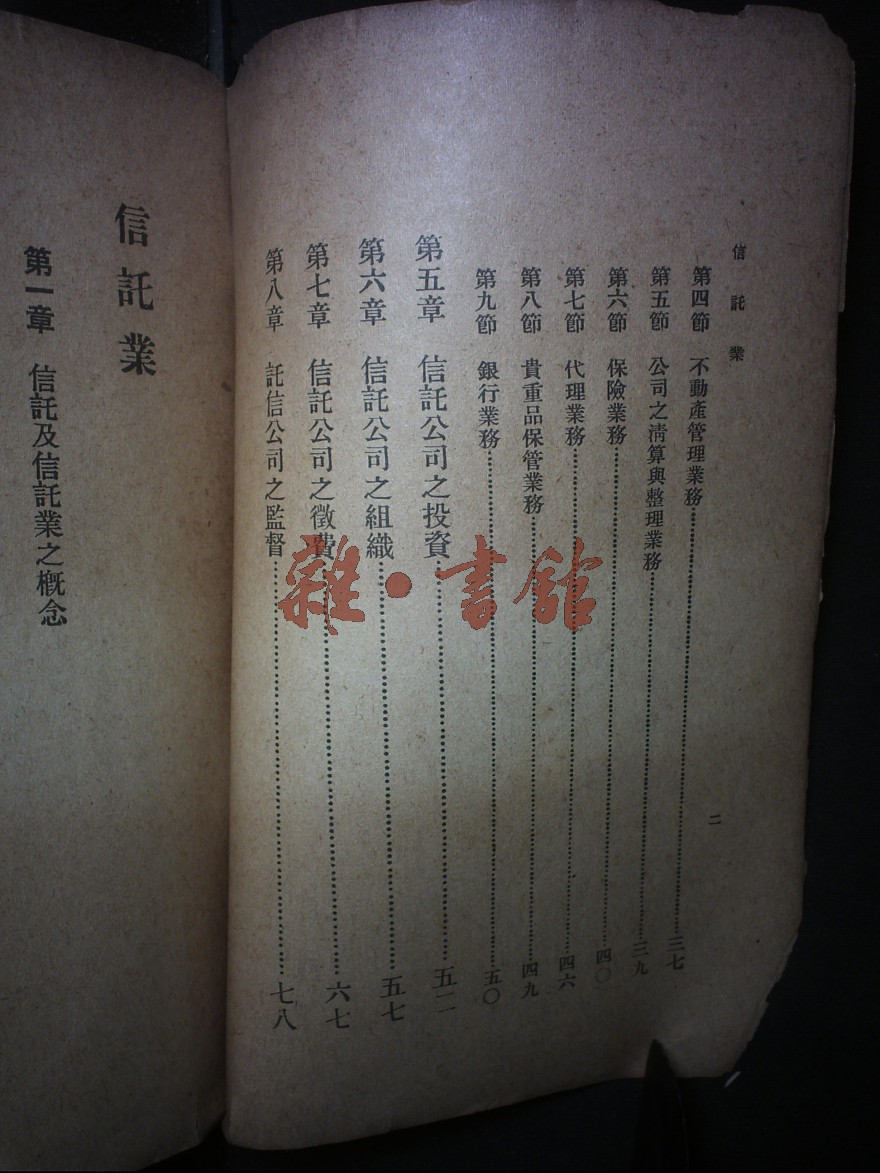 信託業
第四節 不動產管理業務……三七
第五節 公司之淸算與整理業務……三九
第六節 保險業務……四〇
第七節 代理業務……四六
第八節 貴重品保管業務……四九
第九節 銀行業務……五〇
第五章 信託公司之投資……五二
第六章 信託公司之組織……五七
第七章 信託公司之徵費……六七
第八章 託信公司之監督……七八
二
信託業
第一章 信託及信託業之概念
雜·書館